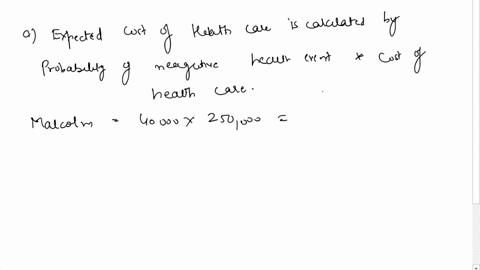 a) Expected Cost of Health care is calculated by
Probability of neagutive health event * Cost of
health care.
Malcolm = 40000 × 250,000 =